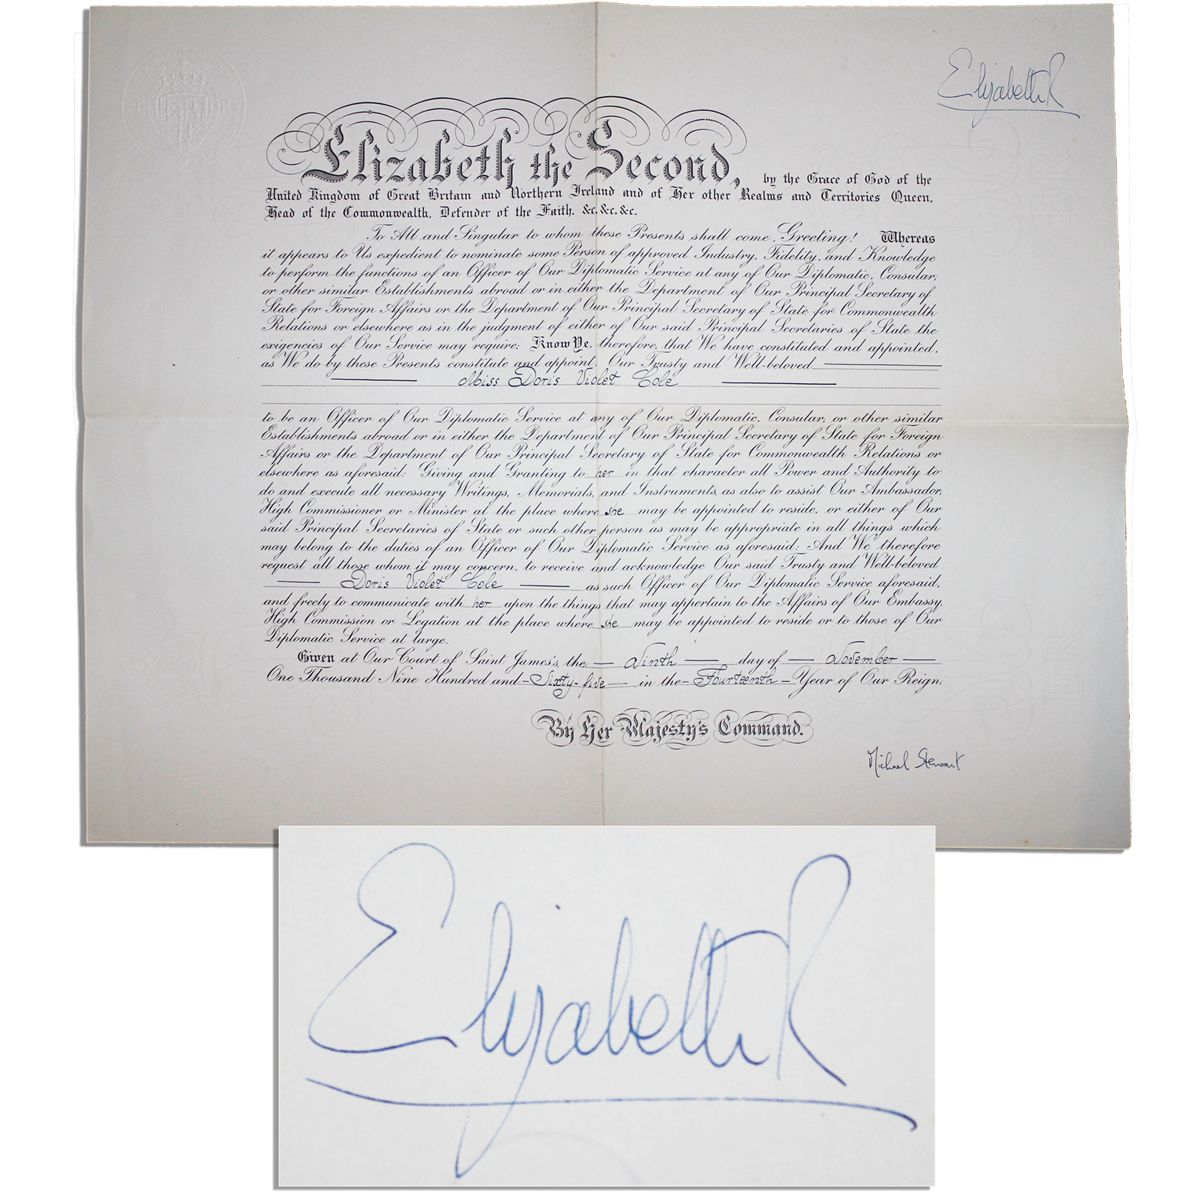 Elizabeth R
Elizabeth the Second,
by the Grace of God of the
United Kingdom of Great Britain and Northern Ireland and of Her other Realms and Territories Queen,
Head of the Commonwealth, Defender of the Faith, &c.&c.&c.
To All and Singular to whom these Presents shall come, Greeting! Whereas
it appears to Us expedient to nominate some Person of approved Industry, Fidelity, and Knowledge
to perform the functions of an Officer of Our Diplomatic Service at any of Our Diplomatic, Consular,
or other similar Establishments abroad or in either the Department of Our Principal Secretary of
State for Foreign Affairs or the Department of Our Principal Secretary of State for Commonwealth
Relations or elsewhere as in the judgment of either of Our said Principal Secretaries of State the
exigencies of Our Service may require; Know Ye, therefore, that We have constituted and appointed,
as We do by these Presents constitute and appoint, Our Trusty and Well-beloved
Miss Doris Violet Cole
to be an Officer of Our Diplomatic Service at any of Our Diplomatic, Consular, or other similar
Establishments abroad or in either the Department of Our Principal Secretary of State for Foreign
Affairs or the Department of Our Principal Secretary of State for Commonwealth Relations or
elsewhere as aforesaid: Giving and Granting to her in that character all Power and Authority to
do and execute all necessary Writings, Memorials, and Instruments, as also to assist Our Ambassador,
High Commissioner or Minister at the place where she may be appointed to reside, or either of Our
said Principal Secretaries of State or such other person as may be appropriate in all things which
may belong to the duties of an Officer of Our Diplomatic Service as aforesaid: And We therefore
request all those whom it may concern, to receive and acknowledge Our said Trusty and Well-beloved
Doris Violet Cole as such Officer of Our Diplomatic Service aforesaid,
and freely to communicate with her upon the things that may appertain to the Affairs of Our Embassy,
High Commission or Legation at the place where she may be appointed to reside or to those of Our
Diplomatic Service at large.
Given at Our Court of Saint James's, the Ninth day of November
One Thousand Nine Hundred and Sixty-five in the Fourteenth Year of Our Reign.
By Her Majesty's Command.
Michael Stewart
Elizabeth R